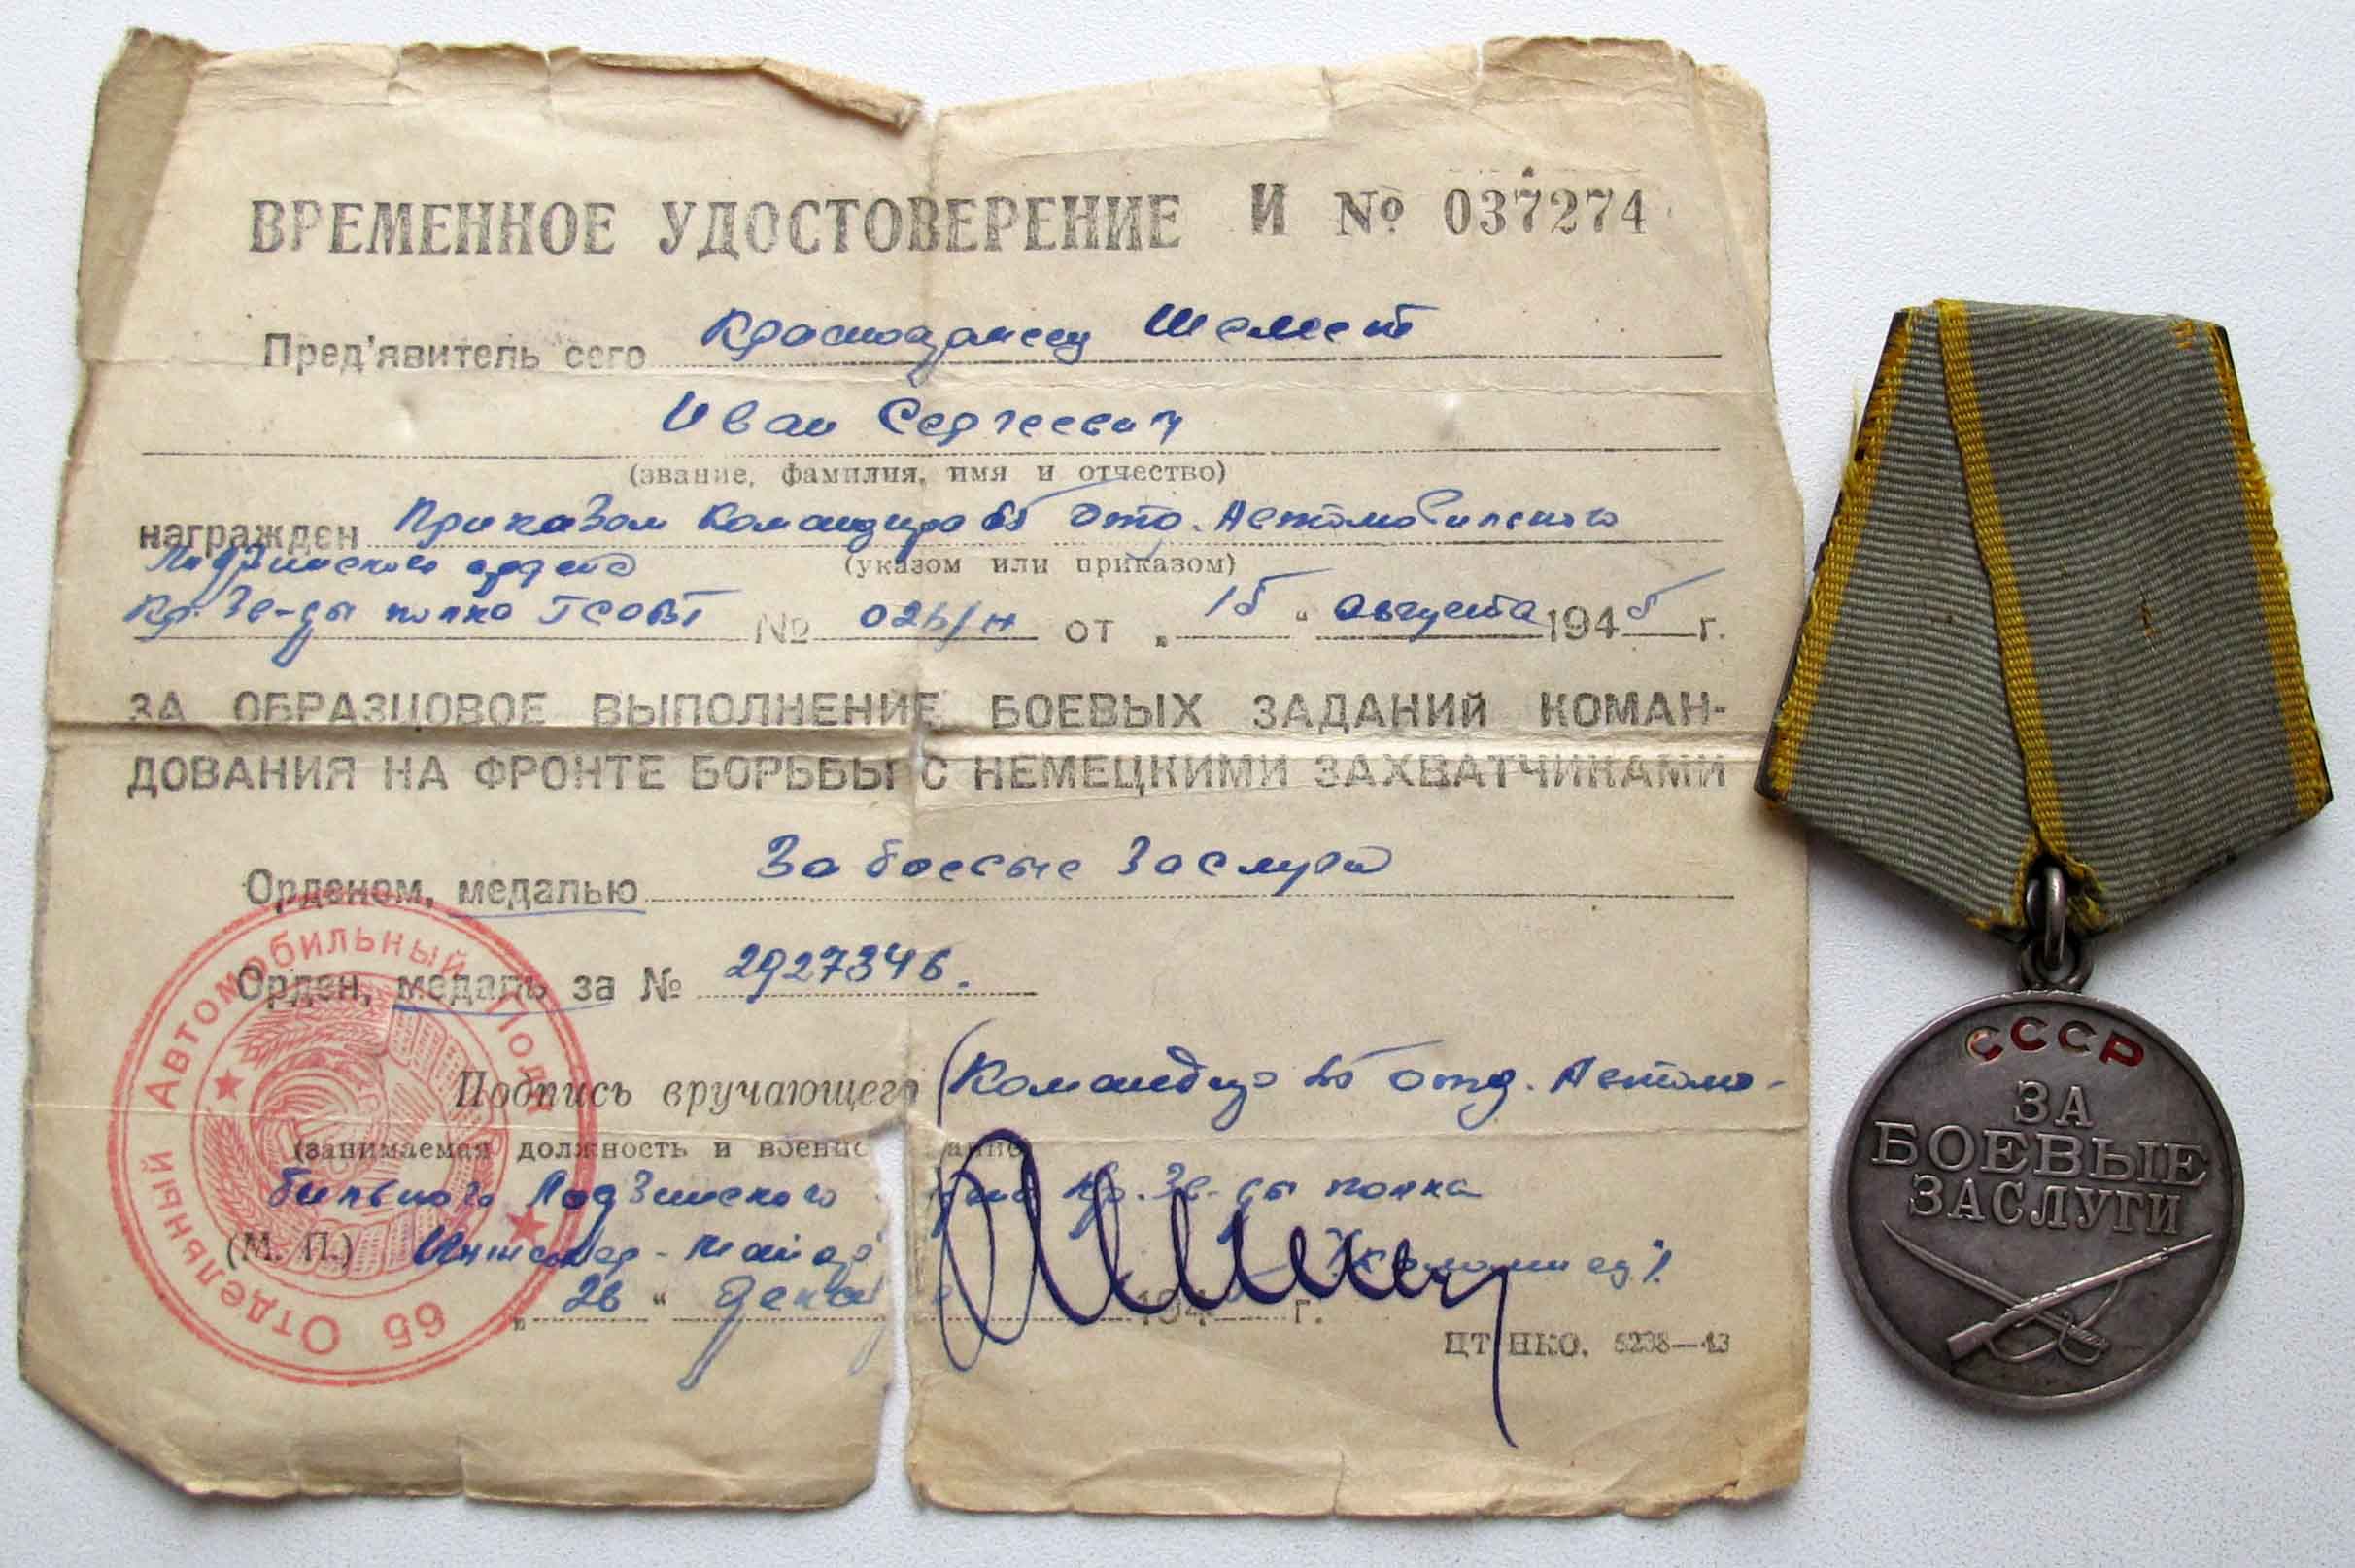 ВРЕМЕННОЕ УДОСТОВЕРЕНИЕ И № 037274
Пред'явитель сего Красноармеец Шемет
Иван Сергеевич
(звание, фамилия, имя и отчество)
награжден Приказом Командира 65 отд. Автомобильного
(указом или приказом)
Лодзинского ордена
Кр. Зв-ды полка ГСОВГ № 026/н от „ 15 " августа 1945 г.
ЗА ОБРАЗЦОВОЕ ВЫПОЛНЕНИЕ БОЕВЫХ ЗАДАНИЙ КОМАН-
ДОВАНИЯ НА ФРОНТЕ БОРЬБЫ С НЕМЕЦКИМИ ЗАХВАТЧИКАМИ
Орденом, медалью За боевые заслуги
Орден, медаль за № 2927346.
Подпись вручающего (Командир 65 отд. Автомо-
(занимаемая должность и военн ание
бильного Лодзинского Кр. Зв-ды полка
(М. П.) Инженер-майор
„ 26 " дека 194 г.
ЦТ НКО. 5238—43
65 Отдельный Автомобильный Полк
СССР
ЗА
БОЕВЫЕ
ЗАСЛУГИ